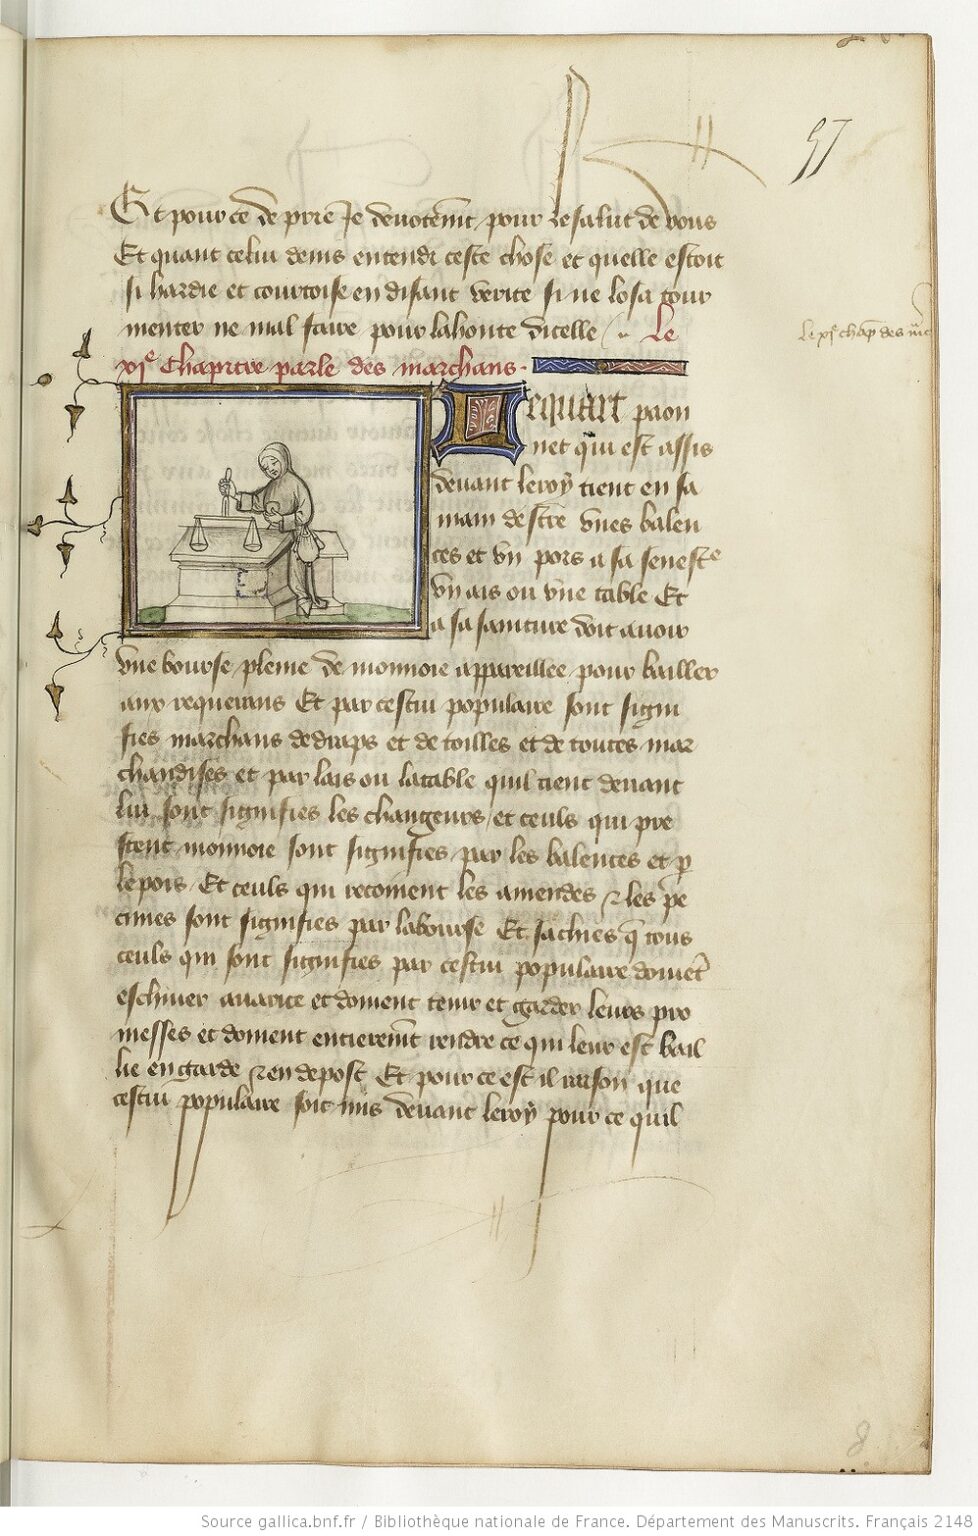 57
Et pour ce de prie Je devotemt pour le salut de vous
Et quant celui denis entendi ceste chose et quelle estoit
si hardie et courtoise en disant verite si ne losa tour
menter ne mal faire pour lahonte dicelle Le
xie Chapitre parle des marchans
Le xie chap des
Le quart paon
net qui est assis
devant le roy tient en sa
main destre unes balen
ces et un pois a sa senestre
un ais ou une table Et
a sa sainture doit avoir
une bourse pleine de monnoie appareillee pour bailler
aux requerans Et par cestui populaire sont signi
fies marchans de draps et de toilles et de toutes mar
chandises et par lais ou la table quil tient devant
lui sont signifies les changeurs et ceuls qui pre
stent monnoie sont signifies par les balences et p
le pois Et ceuls qui recoivent les amendes et les pe
cunes sont signifies par la bourse Et sachies q tous
ceuls qui sont signifies par cestui populaire doivet
eschiver avarice et doivent tenir et garder leurs pro
messes et doivent entieremt rendre ce qui leur est bail
lie en garde et en depost Et pour ce est il raison que
cestui populaire soit mis devant le roy pour ce quil
8
Source gallica.bnf.fr / Bibliothèque nationale de France. Département des Manuscrits. Français 2148